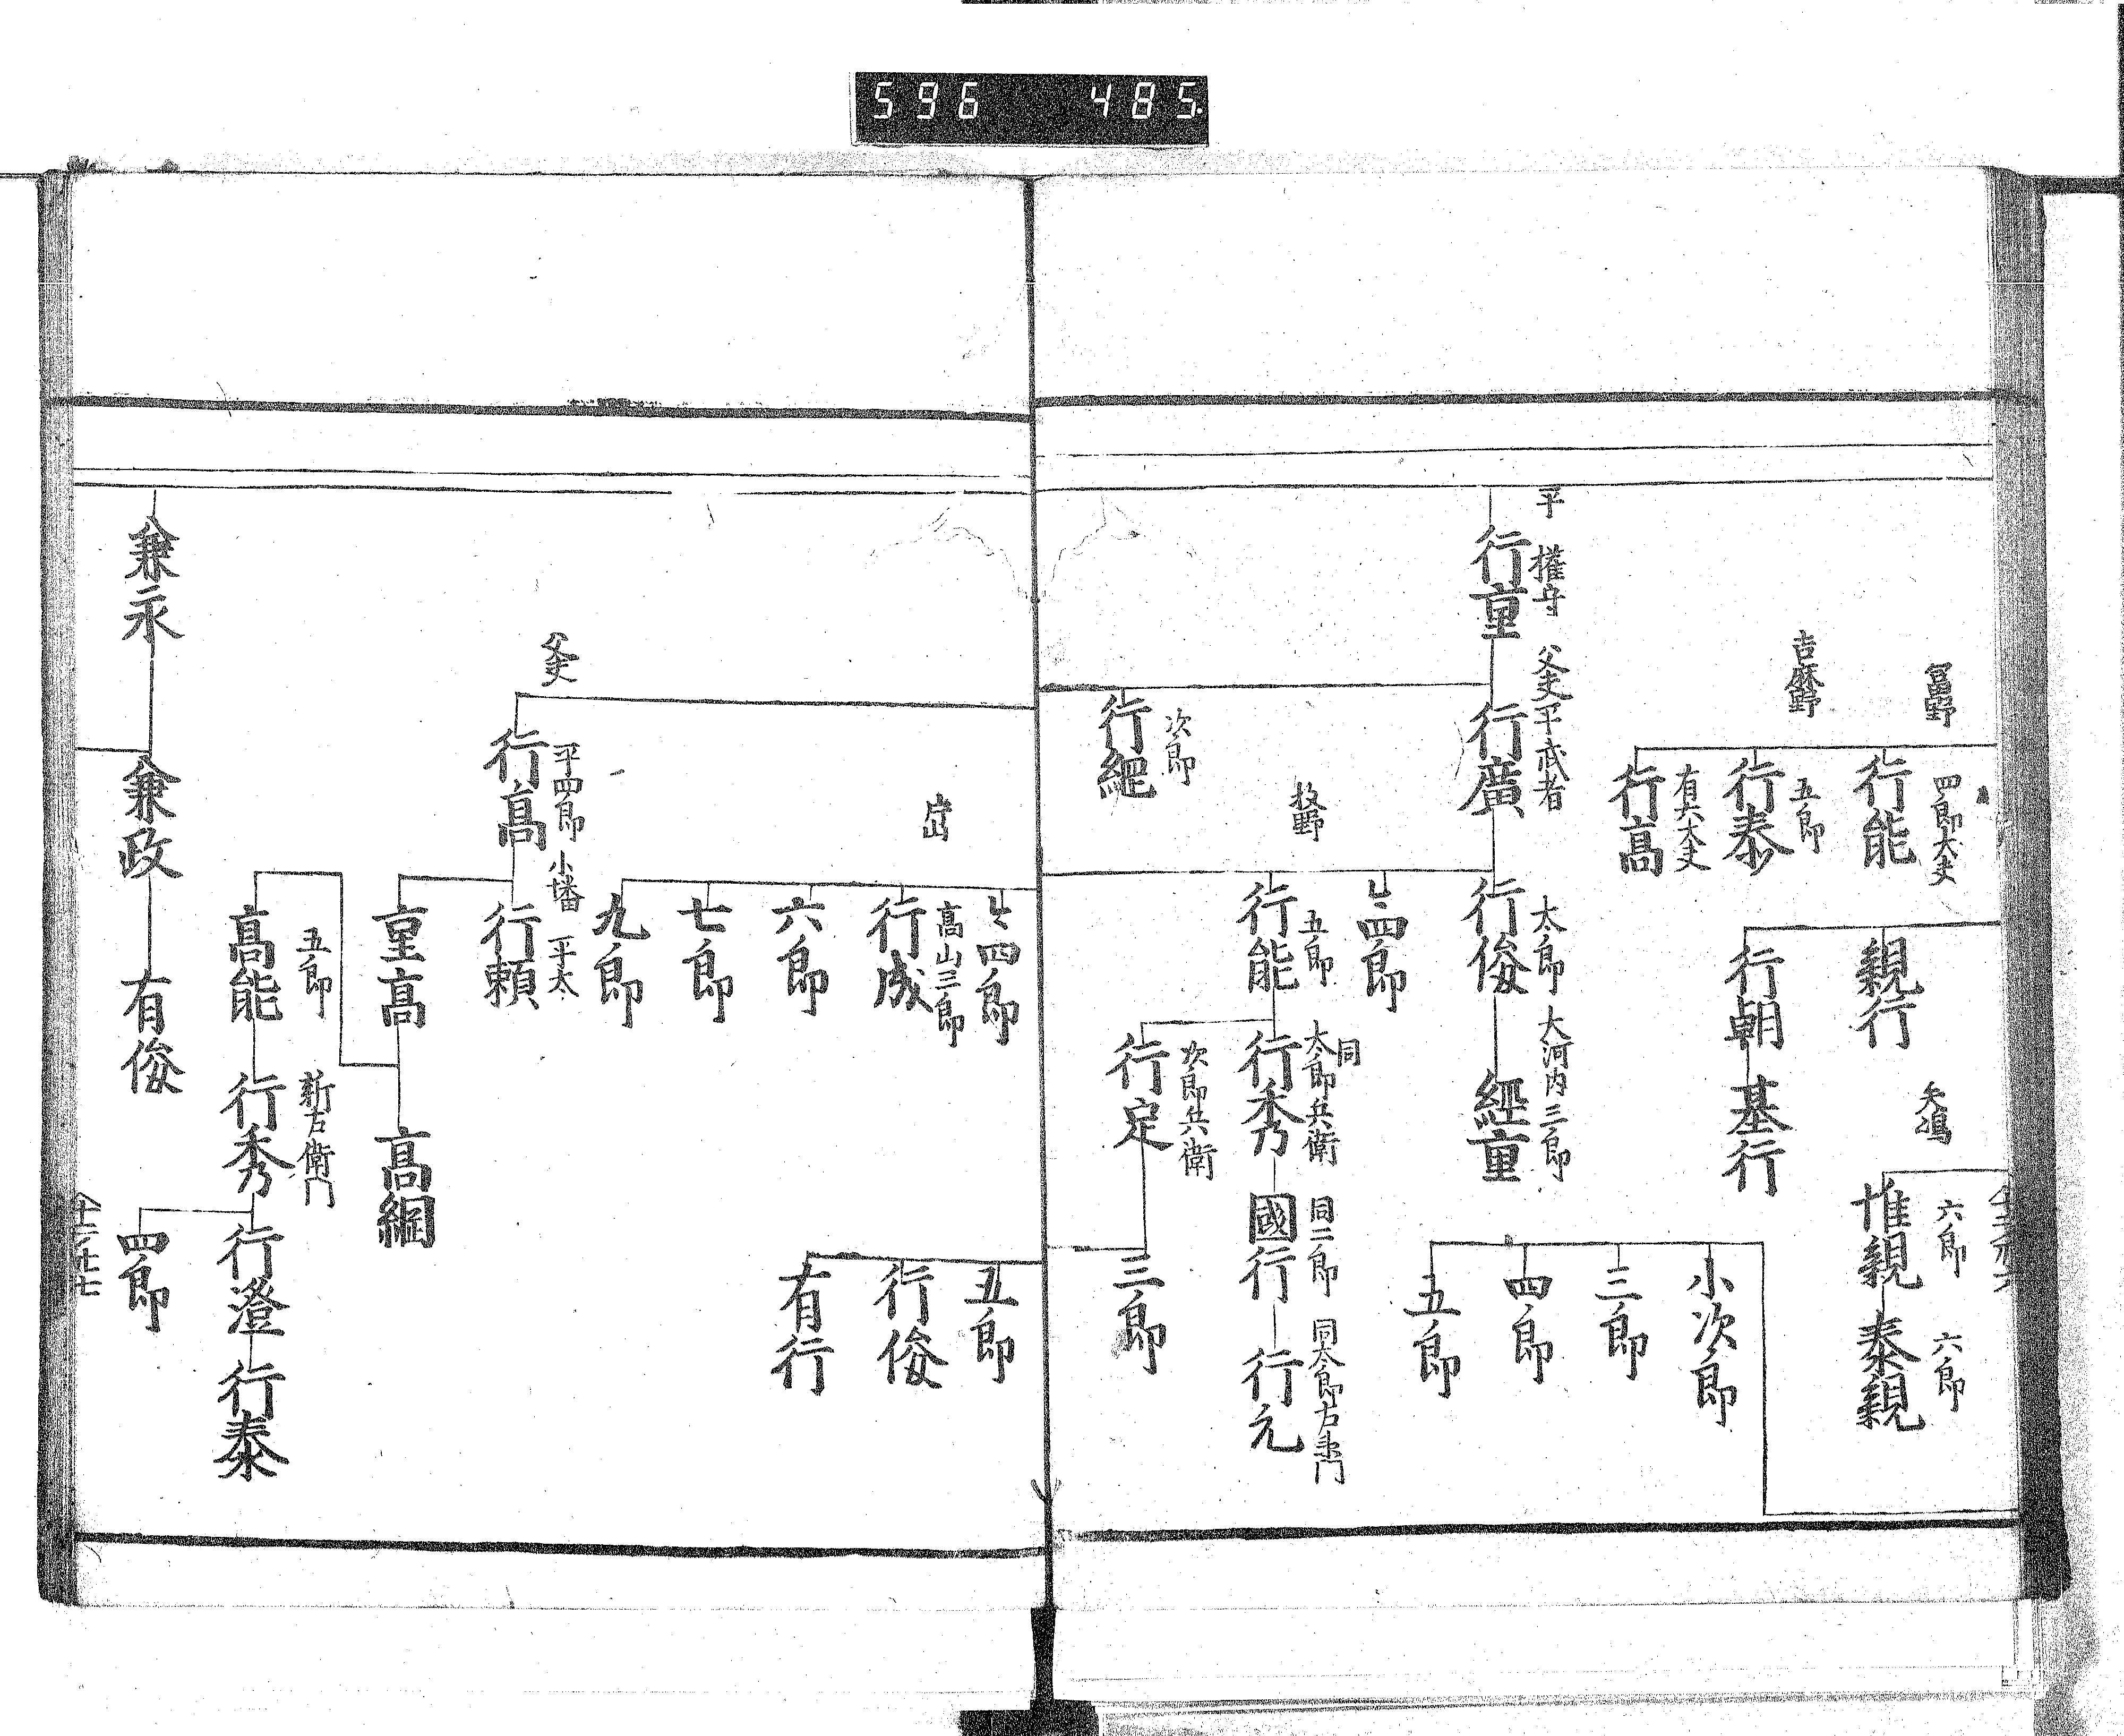 596 485
冨野
四郎大夫
行能
吉麻野
五郎
行泰
有兵大夫
行高
親行
行朝
基行
矢嶋
六郎
惟親
六郎
泰親
小次郎
三郎
四郎
五郎
平 権守
行重
父夫 平武者
行廣
次郎
行綱
太郎
行俊
大河内三郎
經重
四郎
牧野
五郎
行能
同
太郎兵衛
行秀
同二郎
國行
同太郎右衛門
行元
次郎兵衛
行定
三郎
五郎
行俊
有行
四郎
高山三郎
行成
六郎
七郎
九郎
平四郎
行高
小幡 平太
行頼
重高
高綱
五郎
高能
新右衛門
行秀
行澄
行泰
四郎
兼永
兼政
有俊